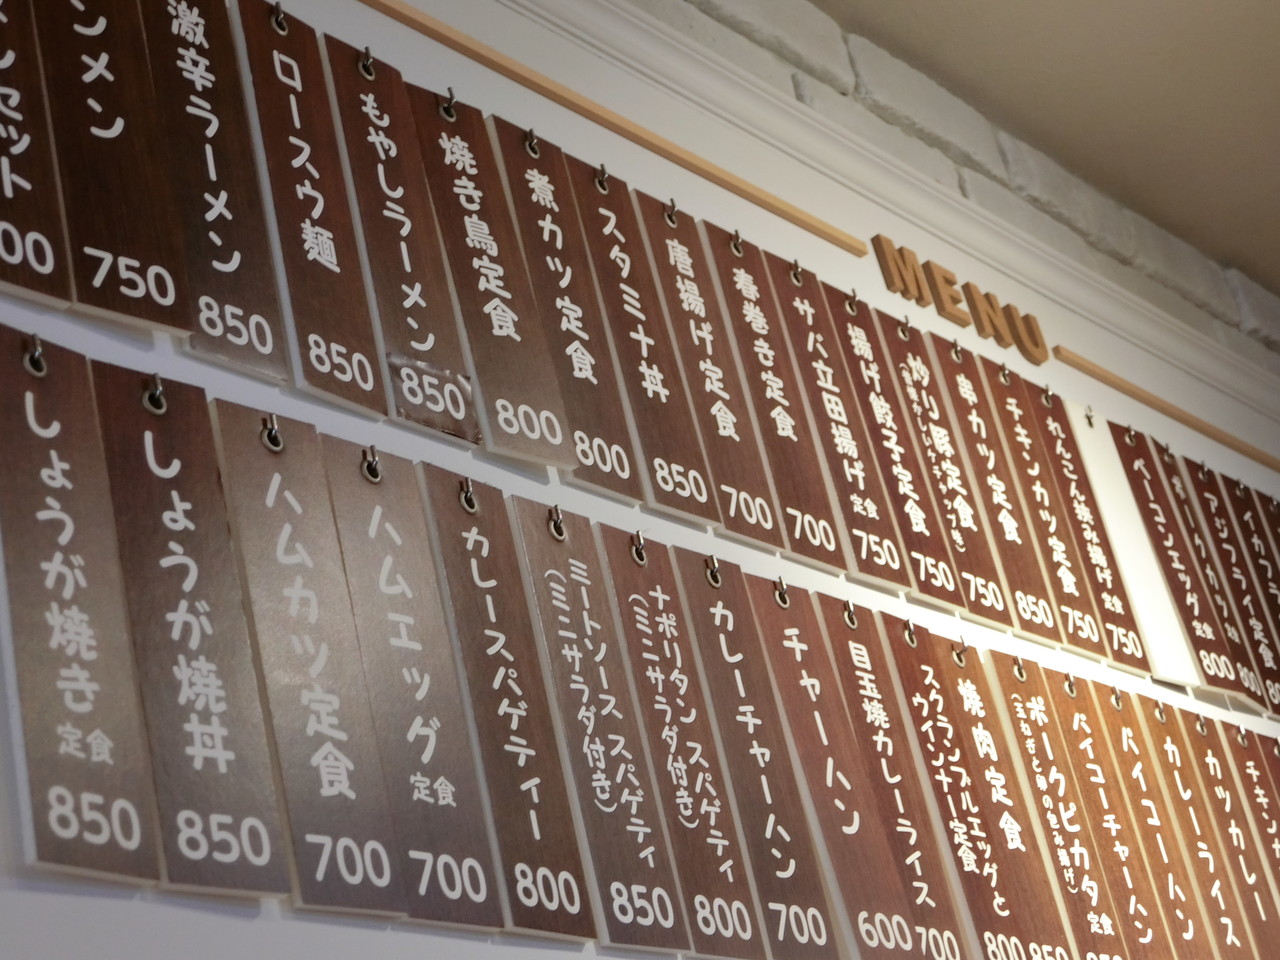 MENU
ンメン
750
激辛ラーメン
850
ロースウ麺
850
もやしラーメン
850
焼き鳥定食
800
煮カツ定食
800
スタミナ丼
850
唐揚げ定食
700
春巻き定食
700
サバ立田揚げ定食
750
揚げ餃子定食
750
炒り豚定食
750
串カツ定食
850
チキンカツ定食
750
れんこん挟み揚げ定食
750
ベーコンエッグ定食
800
しょうが焼き定食
850
しょうが焼丼
850
ハムカツ定食
700
ハムエッグ定食
700
カレースパゲティー
800
ミートソーススパゲティ
(ミニサラダ付き)
850
ナポリタンスパゲティ
(ミニサラダ付き)
800
カレーチャーハン
700
チャーハン
600
目玉焼カレーライス
700
スクランブルエッグと
ウインナー定食
800
焼肉定食
850
ポークピカタ定食
(玉ねぎと卵の包み揚げ)
パイコーチャーハン
パイコーハン
カレーライス
カツカレー